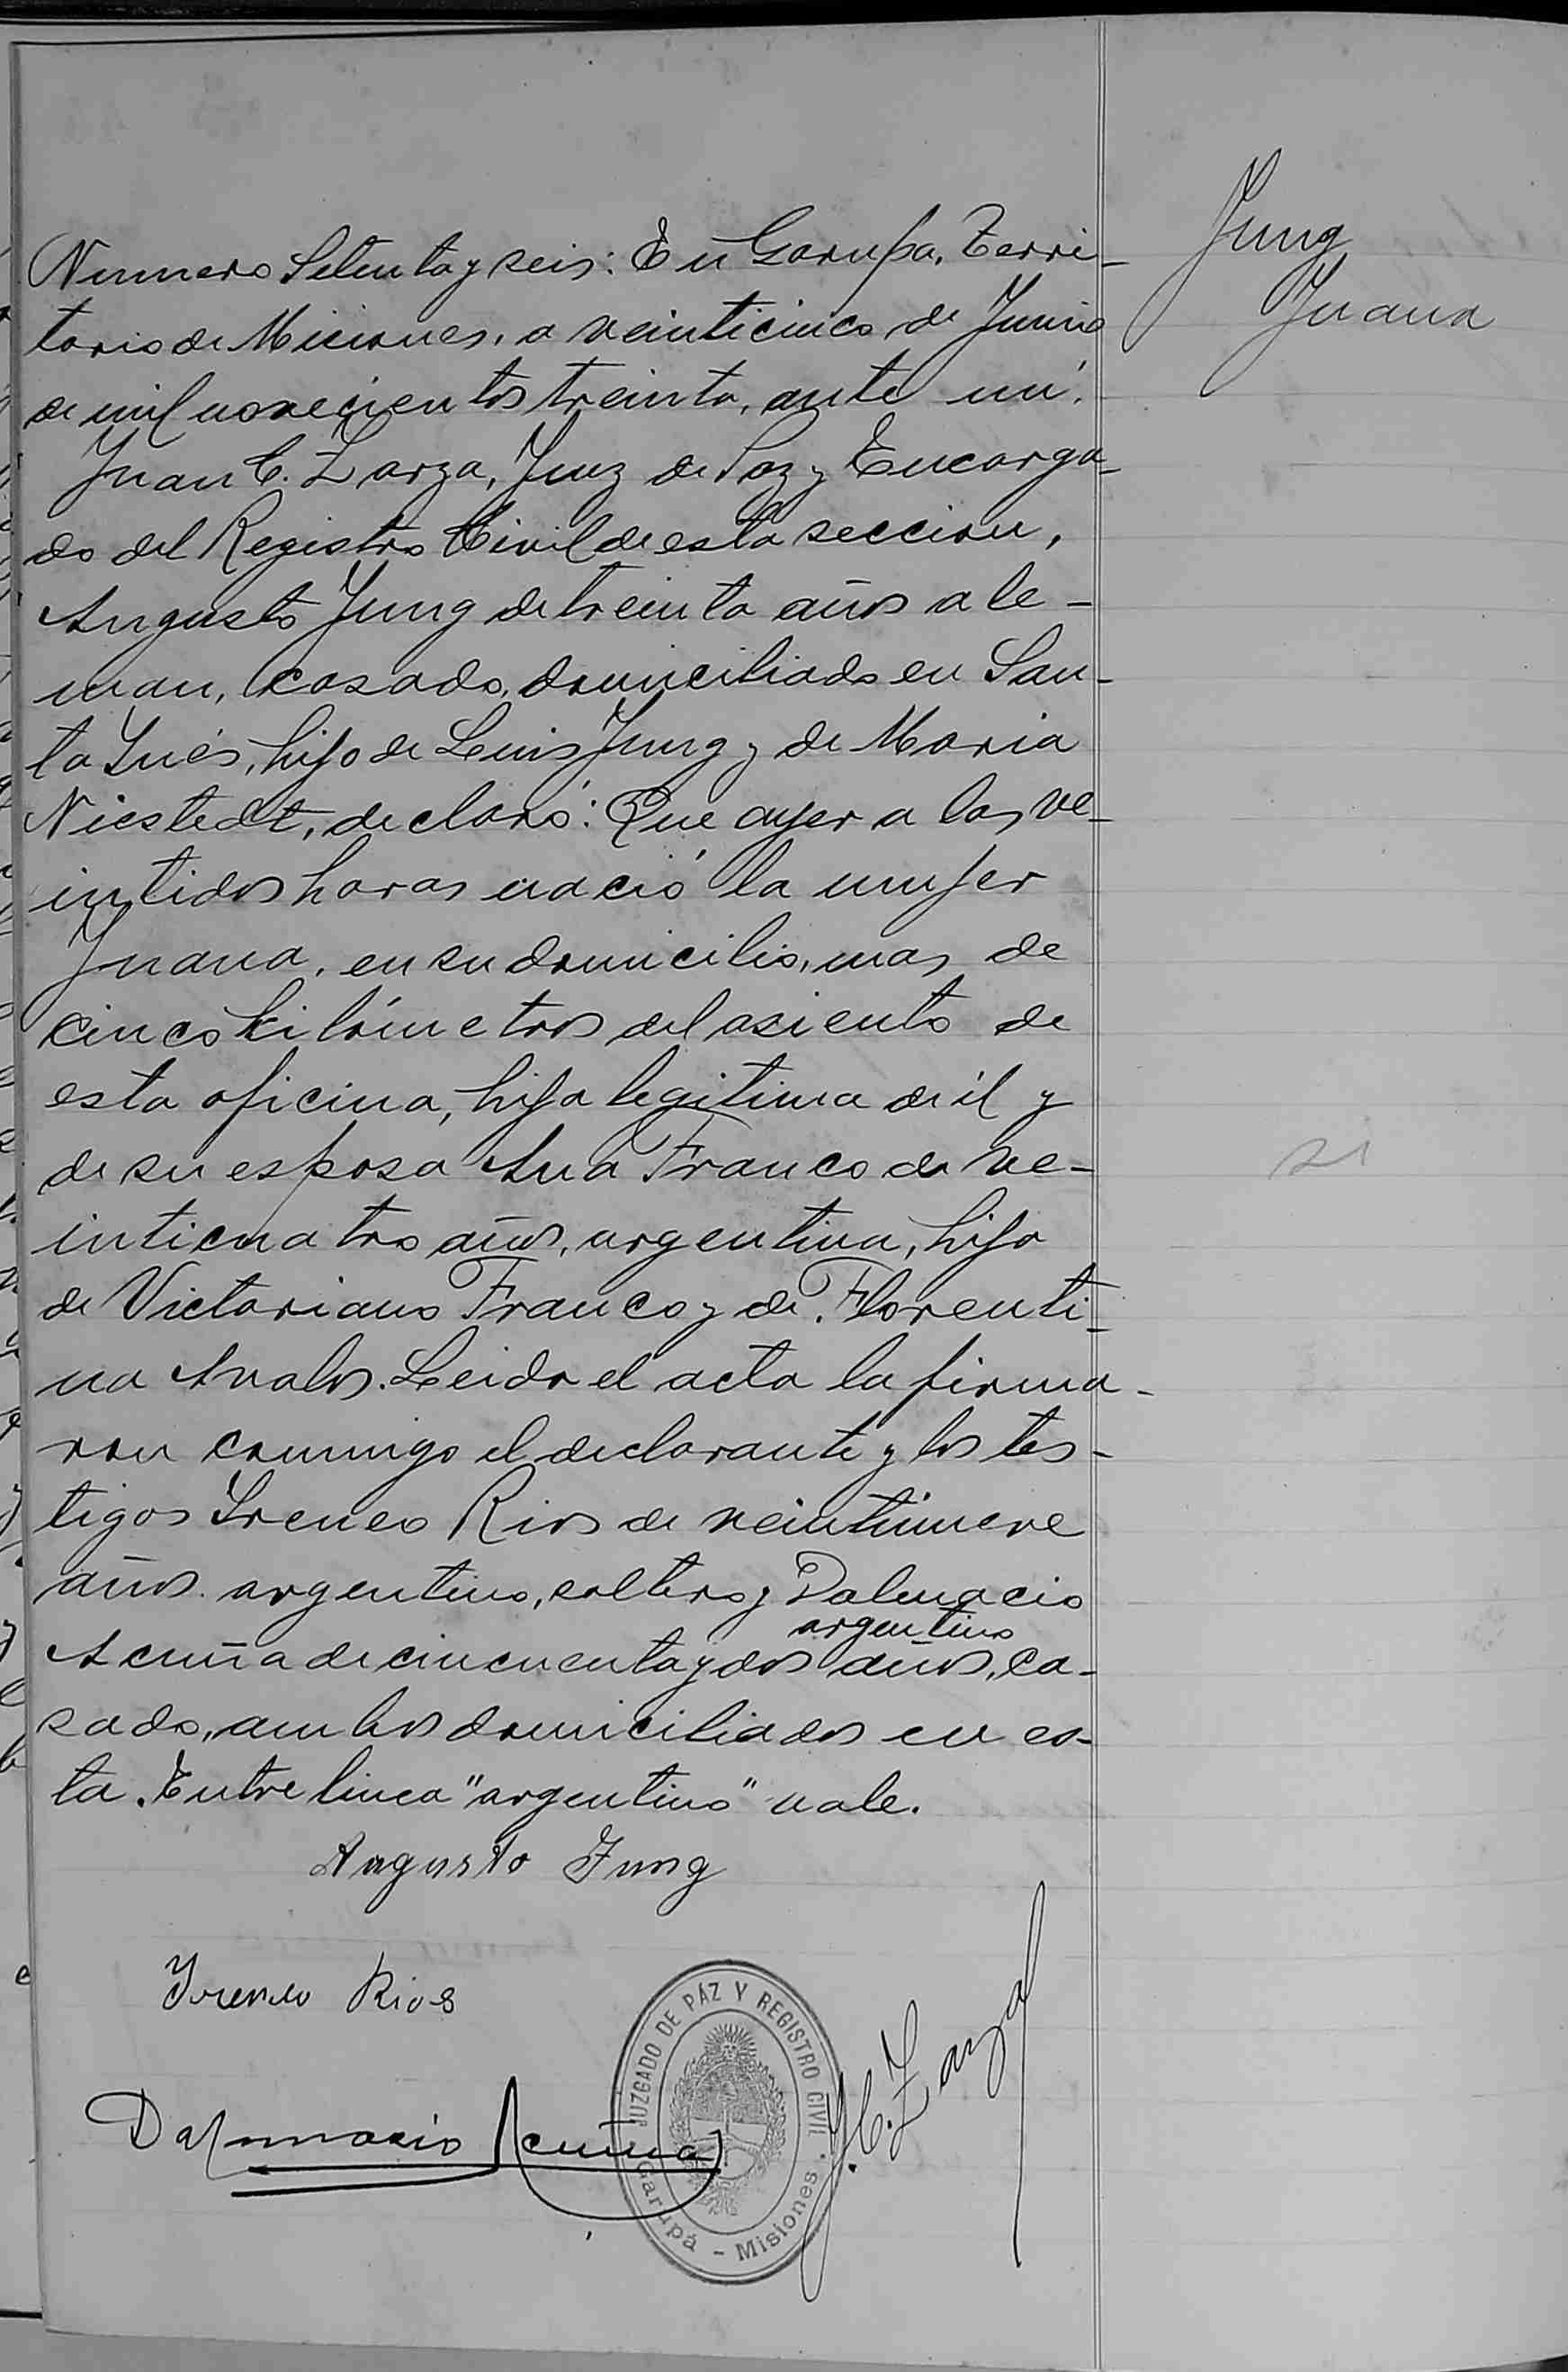 Jung
Juana
Numero Setenta y seis: En Garupa, Terri-
torio de Misiones, a veinticinco de Junio
de mil novecientos treinta, ante mi,
Juan C. Zarza, Juez de Paz y Encarga-
do del Registro Civil de esta seccion,
Augusto Jung de treinta años ale-
man, casado, domiciliado en San-
ta Inés, hijo de Luis Jung y de Maria
Niestedt, declaró: Que ayer a las ve-
intidos horas nació la mujer
Juana, en su domicilio, mas de
cinco kilómetros del asiento de
esta oficina, hija legitima de él y
de su esposa Ana Franco de ve-
inticuatro años, argentina, hija
de Victoriano Franco y de Florenti-
na Avalos. Leida el acta la firma-
ron conmigo el declarante y los tes-
tigos Ireneo Rios de veintinueve
años argentino, soltero y Dalmacio
argentino
Acuña de cincuenta y dos años, ca-
sado, ambos domiciliados en es-
ta. Entre linea "argentino" vale.
si
Augusto Jung
Ireneo Rios
Dalmacio Acuña
J. C. Zarza
JUZGADO DE PAZ Y REGISTRO CIVIL
Garupá - Misiones